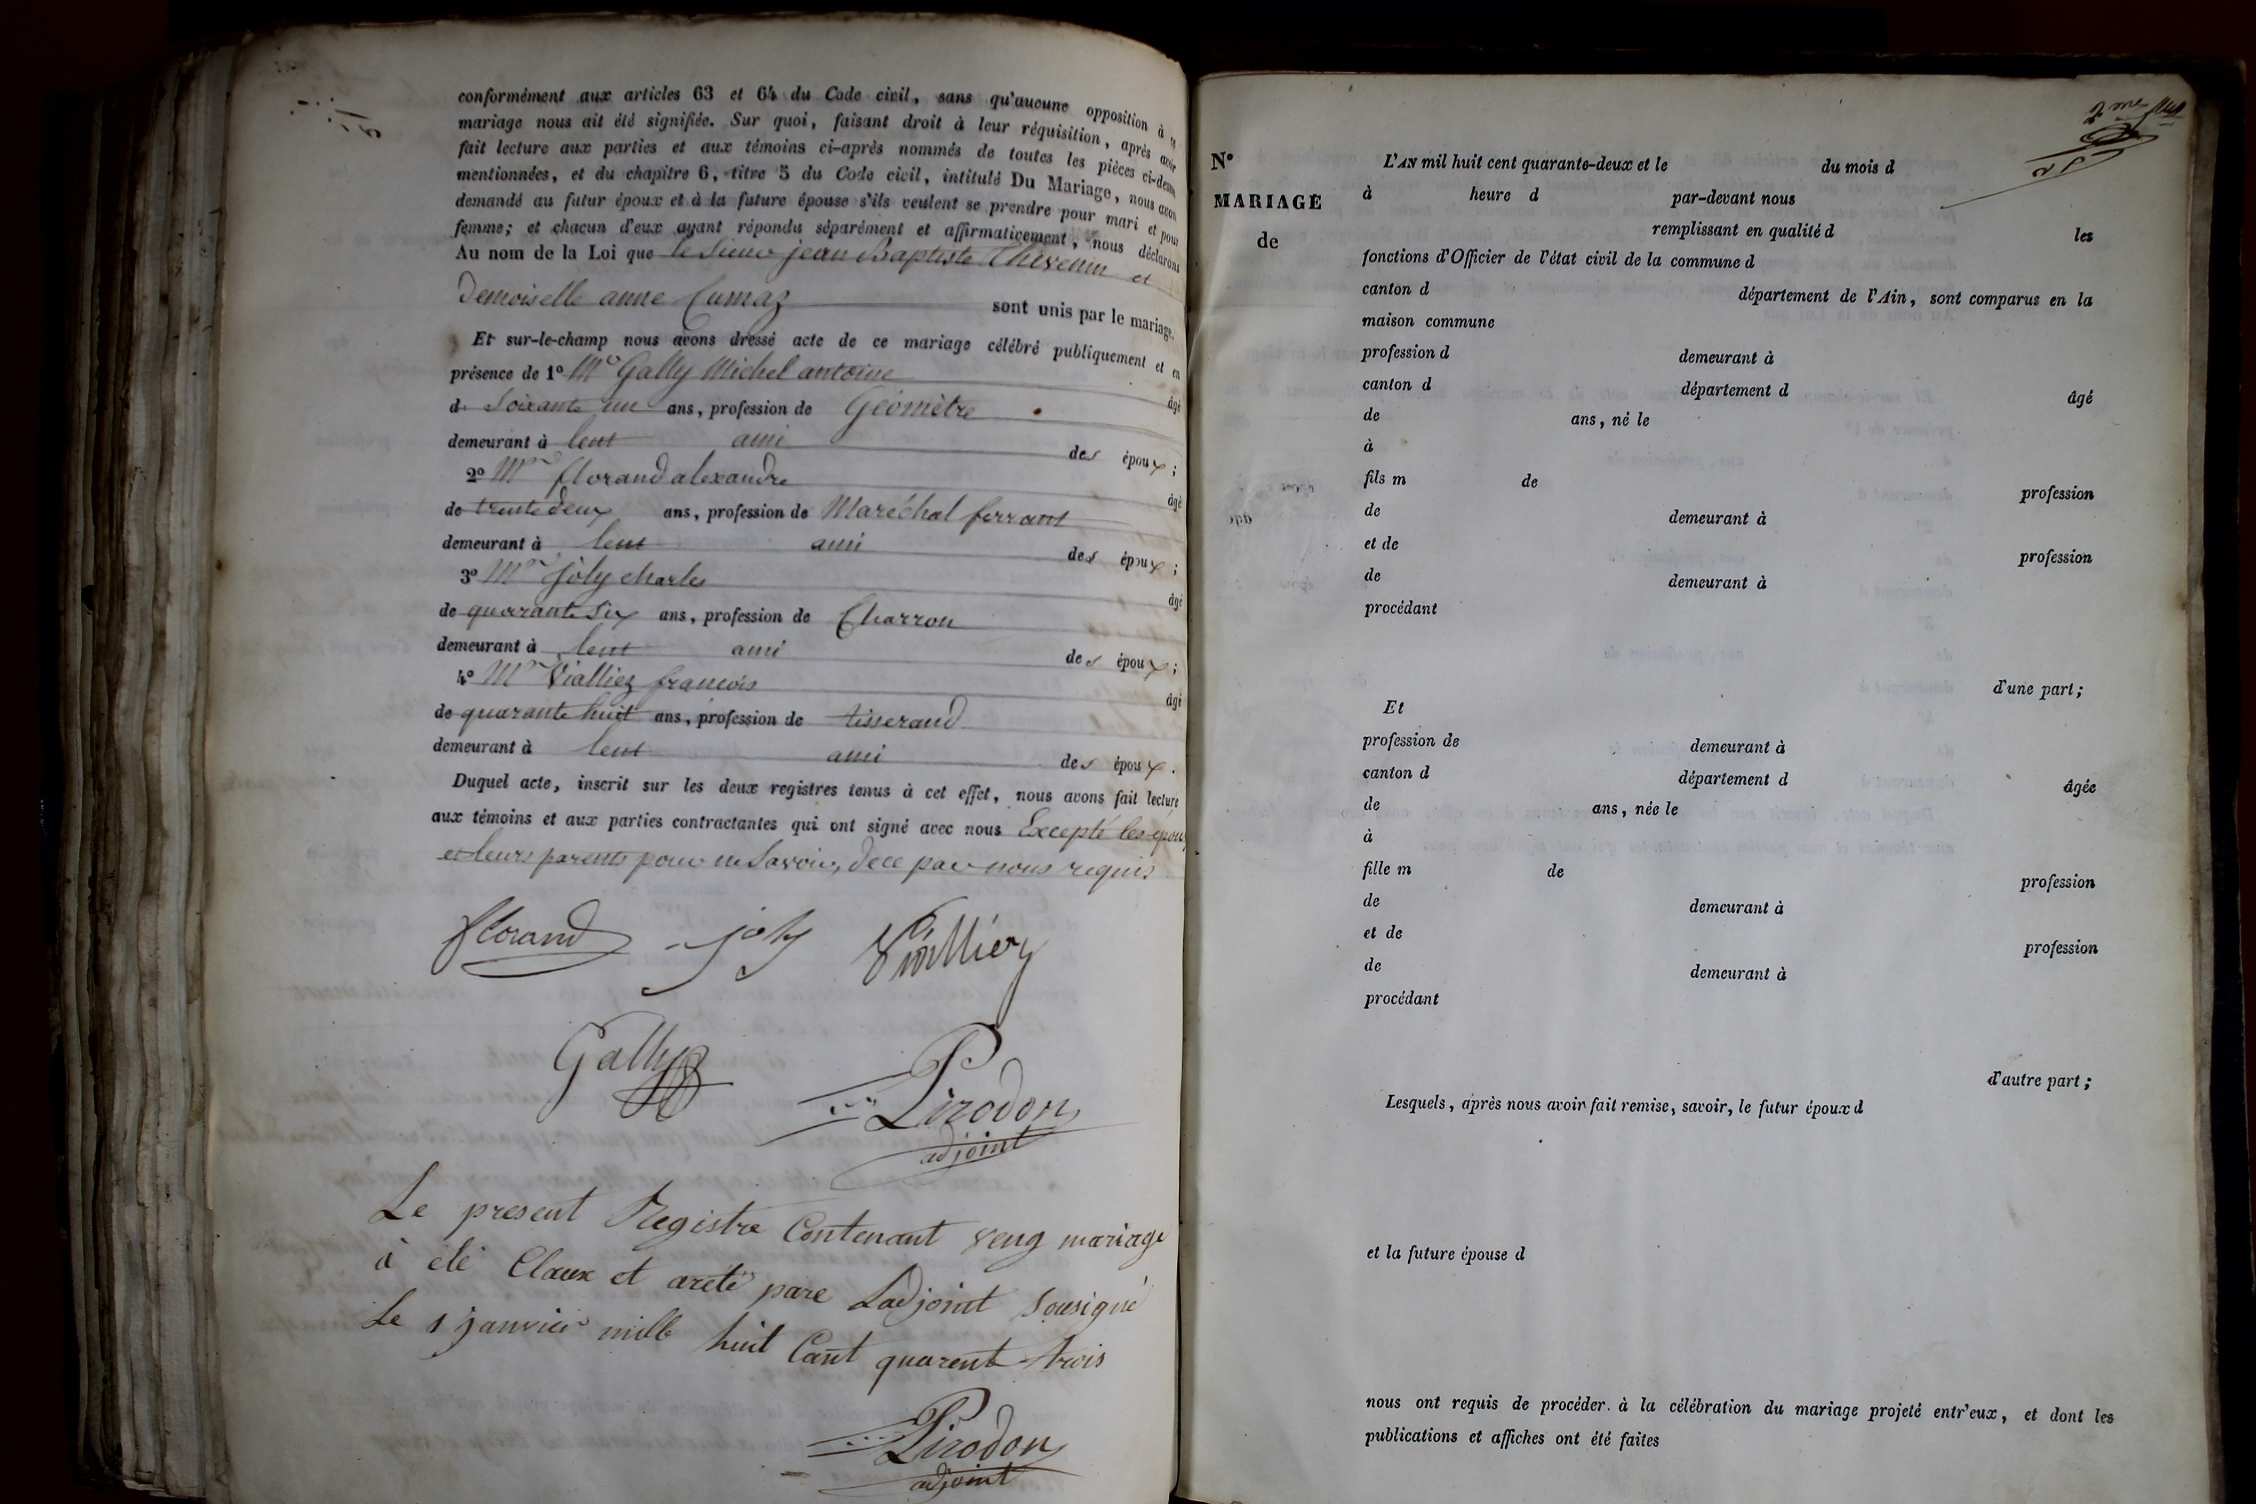 conformément aux articles 63 et 64 du Code civil, sans qu'aucune opposition à
mariage nous ait été signifiée. Sur quoi, faisant droit à leur réquisition, après avoir
fait lecture aux parties et aux témoins ci-après nommés de toutes les pièces ci-dessus
mentionnées, et du chapitre 6, titre 5 du Code civil, intitulé Du Mariage, nous avons
demandé au futur époux et à la future épouse s'ils veulent se prendre pour mari et pour
femme; et chacun d'eux ayant répondu séparément et affirmativement, nous déclarons
Au nom de la Loi que le Sieur jean Baptiste Thevenin et
Demoiselle anne Cumaz sont unis par le mariage.
Et sur-le-champ nous avons dressé acte de ce mariage célébré publiquement et en
présence de 1º Mr Gally Michel antoine âgé
d soixante un ans, profession de Géomètre
demeurant à lent ami des époux;
2º Mr florand alexandre âgé
de trente deux ans, profession de Maréchal ferrant
demeurant à lent ami des époux;
3º Mr joly charles âgé
de quarante six ans, profession de Charron
demeurant à lent ami des époux;
4º Mr Vialliez francois âgé
de quarante huit ans, profession de tisserand
demeurant à lent ami des époux.
Duquel acte, inscrit sur les deux registres tenus à cet effet, nous avons fait lecture
aux témoins et aux parties contractantes qui ont signé avec nous Excepté les époux
et leurs parents pour ne savoir, de ce par nous requis
florand joly Viallier
Gally
Pirodon
adjoint
Le present Registre Contenant veng mariage
à été Claux et areté pare Ladjoint Sousigné
Le 1 janvier mille huit Cant quarent trois
Pirodon
adjoint
2me
25
Nº
MARIAGE
de
L'AN mil huit cent quarante-deux et le du mois d
à heure d par-devant nous
remplissant en qualité d les
fonctions d'Officier de l'état civil de la commune d
canton d département de l'Ain, sont comparus en la
maison commune
profession d demeurant à
canton d département d âgé
de ans, né le
à
fils m de profession
de demeurant à
et de profession
de demeurant à
procédant
d'une part;
Et
profession de demeurant à
canton d département d âgée
de ans, née le
à
fille m de profession
de demeurant à
et de profession
de demeurant à
procédant
d'autre part;
Lesquels, après nous avoir fait remise, savoir, le futur époux d
et la future épouse d
nous ont requis de procéder à la célébration du mariage projeté entr'eux, et dont les
publications et affiches ont été faites